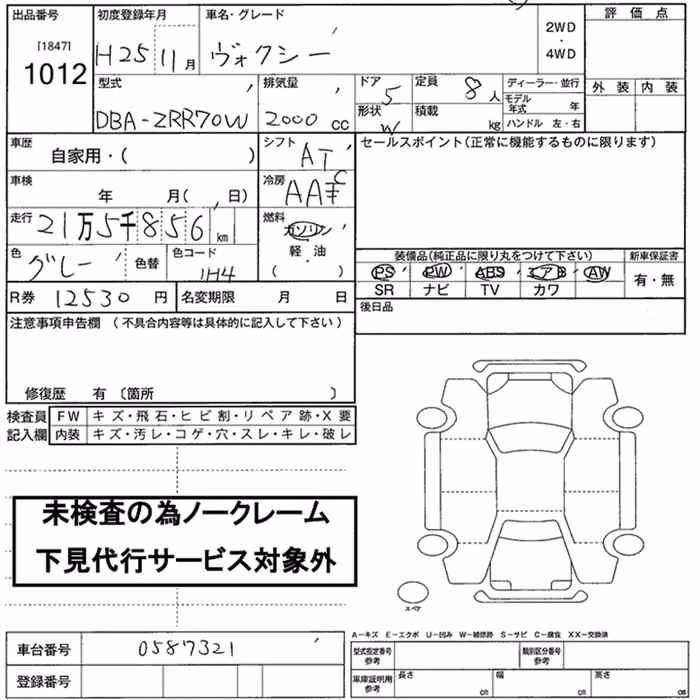 出品番号 初度登録年月 車名・グレード 2WD ・ 4WD 評価点
[1847]
1012 H25 11月 ヴォクシー
外装 内装
型式 排気量 ドア 5 定員 8人 ディーラー・並行
DBA-ZRR70W 2000 cc 形状 W 積載 kg モデル年式 年
ハンドル 左・右
車歴 自家用・( ) シフト AT セールスポイント(正常に機能するものに限ります)
車検 年 月( 日) 冷房 AAC
走行 21万5千856km 燃料 ガソリン
軽・油
( )
色 グレー 色替 色コード 1H4
装備品(純正品に限り丸をつけて下さい) 新車保証書
PS PW ABS エアB AW 有・無
SR ナビ TV カワ
R券 12530円 名変期限 月 日 後日品
注意事項申告欄(不具合内容等は具体的に記入して下さい)
修復歴 有 〔箇所 〕
検査員 FW キズ・飛石・ヒビ割・リペア跡・X要
記入欄 内装 キズ・汚レ・コゲ・穴・スレ・キレ・破レ
未検査の為ノークレーム
下見代行サービス対象外
スペア
A-キズ E-エクボ U-凹み W-補修跡 S-サビ C-腐食 XX-交換済
車台番号 0587321 型式指定番号 参考 類別区分番号 参考
登録番号 車庫証明用 参考 長さ cm 幅 cm 高さ cm